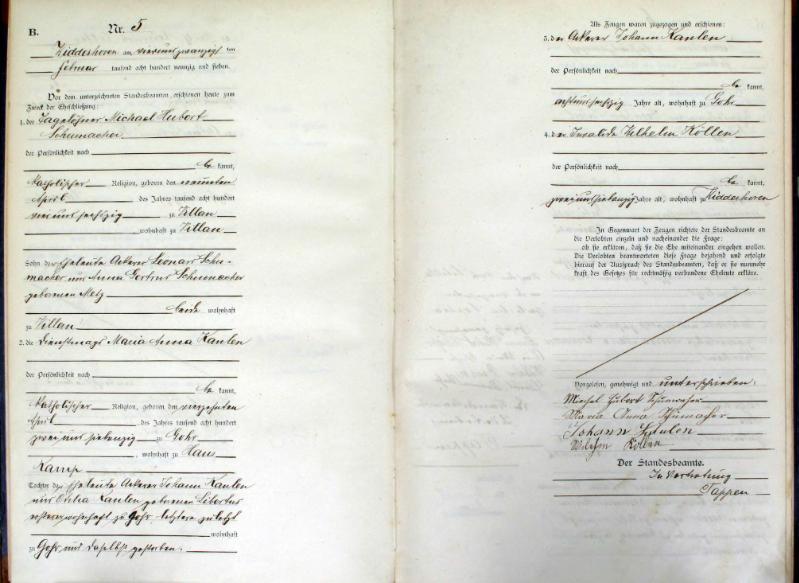 B.
Nr. 5
Hiddeshoven am vierundzwanzigsten
Februar tausend acht hundert neunzig und sieben.
Vor dem unterzeichneten Standesbeamten, erschienen heute zum
Zweck der Eheschließung:
1. der Tagelöhner Michael Hubert
Schumacher
der Persönlichkeit nach
be kannt,
katholischer Religion, geboren den neunten
April des Jahres tausend acht hundert
vierundsechszig zu Villau
wohnhaft zu Villau
Sohn der Eheleute Ackerer Leonard Schu-
macher und Anna Gertrud Schumacher
geborenen Metz
beide wohnhaft
zu Villau
2. die Dienstmagd Maria Anna Kaulen
der Persönlichkeit nach
be kannt,
katholischer Religion, geboren den vierzehnten
April des Jahres tausend acht hundert
zweiundsiebenzig zu Gohr
, wohnhaft zu Haus
Kamp
Tochter der Eheleute Ackerer Johann Kaulen
und Otilia Kaulen geborenen Libertus
ersterer wohnhaft zu Gohr, letztere zuletzt
wohnhaft
zu Gohr und daselbst gestorben.
Als Zeugen waren zugezogen und erschienen:
3. der Ackerer Johann Kaulen
der Persönlichkeit nach
be kannt,
achtundsechszig Jahre alt, wohnhaft zu Gohr
4. der Invalide Wilhelm Köllen
der Persönlichkeit nach
be kannt,
zweiundsiebenzig Jahre alt, wohnhaft zu Hiddeshoven
In Gegenwart der Zeugen richtete der Standesbeamte an
die Verlobten einzeln und nacheinander die Frage:
ob sie erklären, daß sie die Ehe miteinander eingehen wollen.
Die Verlobten beantworteten diese Frage bejahend und erfolgte
hierauf der Ausspruch des Standesbeamten, daß er sie nunmehr
kraft des Gesetzes für rechtmäßig verbundene Eheleute erkläre.
Vorgelesen, genehmigt und unterschrieben:
Michel Hubert Schumacher
Maria Anna Schumacher
Johann Kaulen
Wilhelm Köllen
Der Standesbeamte.
In Vertretung
Tappen